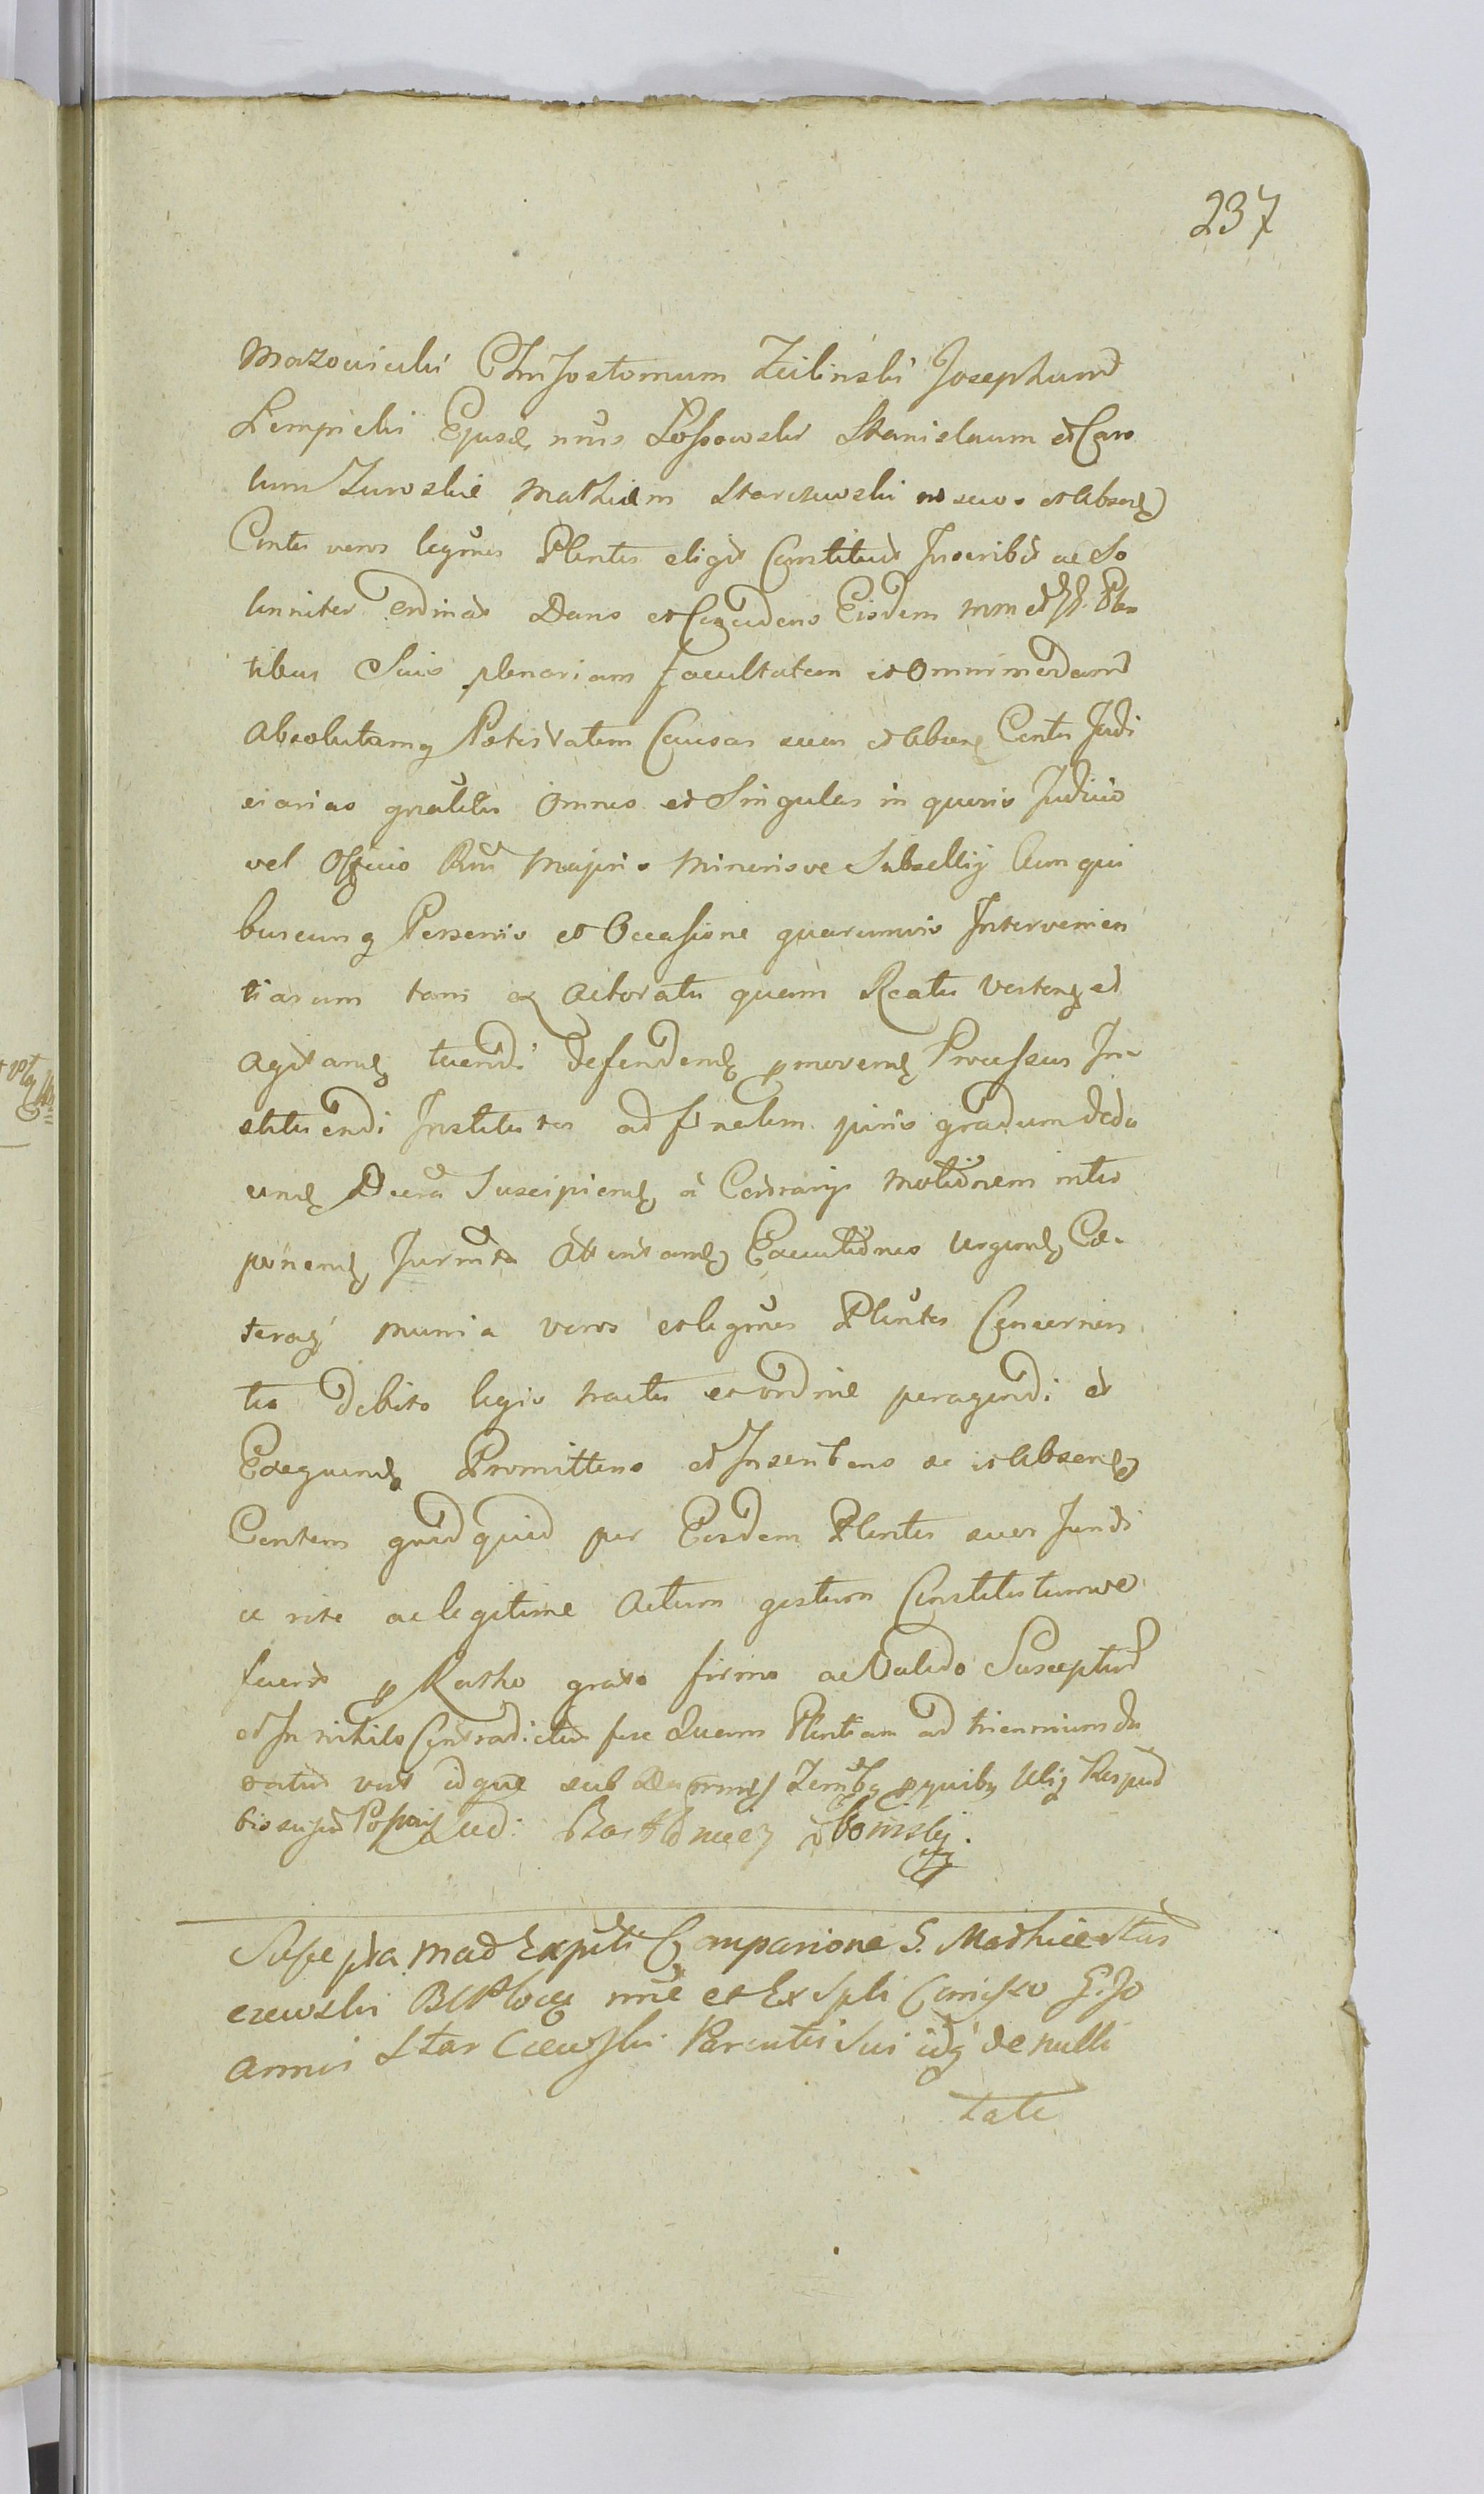 237
Mazowiecki Chrisostomum Zieliński Josephum
Lempicki Ejusd nnis Lossowski Stanislaum et Caro
lum Zuroskie Mathiam Starczewski nō secus et absen
Contes veros legmos Plentes eligit Constituit Inscribit ac So
lenniter ordinat Dans et Concedens Eisdem mm et Plen
tibus Suis plenariam facultatem et omnimodam
absolutamq Potestatem Causas suas et absen Contis Judi
ciarias gnaliter omnes et Singulas in quovis Judicio
vel Officio Rni Majoris Minorisve Subsellij Cum qui
buscunq Personis et Occasione quarumvis Intervenien
tiarum tam ex Actoratu quam Reatu vertens et
agitand tuendi defendend pmovend Processus In
stituendi Institutos ad finalem juris gradum dedu
cend Decreta Suscipiend a Contrarijs motionem inter
ponend Jurmta attentand Executiones urgend Cae
teraq munia veros et legmos Plentes Concernen
tia debito legis tractu et ordine peragendi et
Exequend Promittens et Inscribens se et absen
Contem quidquid per Eosdem Plentes suos Jundi
ce rite ac legitime actum gestum Constitutumve
fuerit p Ratho grato firmo ac Valido Susceptur
et In nihilo Contradictur fore Quam Plentiam ad triennium du
ratur vult idque sub
Zboinski
Suscepta Mad Expdti Comparione G. Mathiae Star
czewski
annis Starczewski Parentis Sui idq de nulli
tate